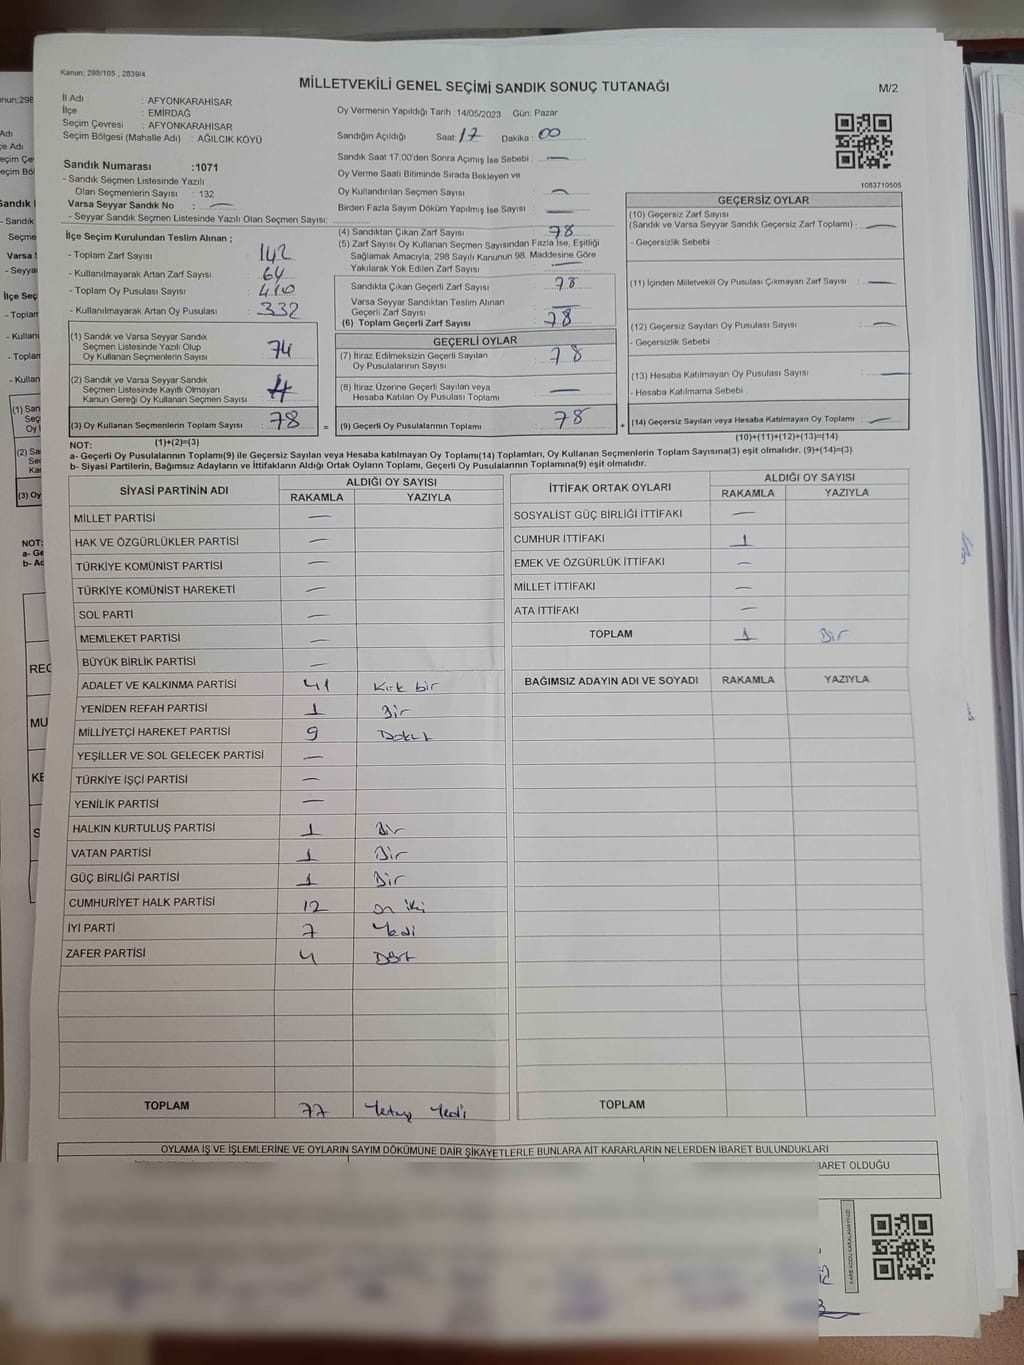 Kanun; 298/105 , 2839/4
MİLLETVEKİLİ GENEL SEÇİMİ SANDIK SONUÇ TUTANAĞI
M/2
İl Adı : AFYONKARAHİSAR
İlçe : EMİRDAĞ
Seçim Çevresi : AFYONKARAHİSAR
Seçim Bölgesi (Mahalle Adı) : AĞILCIK KÖYÜ
Sandık Numarası :1071
- Sandık Seçmen Listesinde Yazılı
Olan Seçmenlerin Sayısı : 132
Varsa Seyyar Sandık No : —
- Seyyar Sandık Seçmen Listesinde Yazılı Olan Seçmen Sayısı:
Oy Vermenin Yapıldığı Tarih :14/05/2023 Gün: Pazar
Sandığın Açıldığı Saat: 17 Dakika : 00
Sandık Saat 17.00'den Sonra Açımış İse Sebebi : —
Oy Verme Saati Bitiminde Sırada Bekleyen ve
Oy Kullandırılan Seçmen Sayısı : —
Birden Fazla Sayım Döküm Yapılmış İse Sayısı : —
1083710505
İlçe Seçim Kurulundan Teslim Alınan ;
- Toplam Zarf Sayısı : 142
- Kullanılmayarak Artan Zarf Sayısı : 64
- Toplam Oy Pusulası Sayısı : 410
- Kullanılmayarak Artan Oy Pusulası : 332
(1) Sandık ve Varsa Seyyar Sandık
Seçmen Listesinde Yazılı Olup
Oy Kullanan Seçmenlerin Sayısı : 74
(2) Sandık ve Varsa Seyyar Sandık
Seçmen Listesinde Kayıtlı Olmayan
Kanun Gereği Oy Kullanan Seçmen Sayısı : 4
(3) Oy Kullanan Seçmenlerin Toplam Sayısı : 78
(1)+(2)=(3)
(4) Sandıktan Çıkan Zarf Sayısı : 78
(5) Zarf Sayısı Oy Kullanan Seçmen Sayısından Fazla İse, Eşitliği
Sağlamak Amacıyla; 298 Sayılı Kanunun 98. Maddesine Göre
Yakılarak Yok Edilen Zarf Sayısı : —
Sandıkta Çıkan Geçerli Zarf Sayısı : 78
Varsa Seyyar Sandıktan Teslim Alınan
Geçerli Zarf Sayısı : —
(6) Toplam Geçerli Zarf Sayısı : 78
GEÇERLİ OYLAR
(7) İtiraz Edilmeksizin Geçerli Sayılan
Oy Pusulalarının Sayısı : 78
(8) İtiraz Üzerine Geçerli Sayılan veya
Hesaba Katılan Oy Pusulası Toplamı : —
= (9) Geçerli Oy Pusulalarının Toplamı : 78
GEÇERSİZ OYLAR
(10) Geçersiz Zarf Sayısı
(Sandık ve Varsa Seyyar Sandık Geçersiz Zarf Toplamı) : —
- Geçersizlik Sebebi :
(11) İçinden Milletvekili Oy Pusulası Çıkmayan Zarf Sayısı : —
(12) Geçersiz Sayılan Oy Pusulası Sayısı : —
- Geçersizlik Sebebi :
(13) Hesaba Katılmayan Oy Pusulası Sayısı : —
- Hesaba Katılmama Sebebi :
+ (14) Geçersiz Sayılan veya Hesaba Katılmayan Oy Toplamı : —
(10)+(11)+(12)+(13)=(14)
NOT:
a- Geçerli Oy Pusulalarının Toplamı(9) ile Geçersiz Sayılan veya Hesaba katılmayan Oy Toplamı(14) Toplamları, Oy Kullanan Seçmenlerin Toplam Sayısına(3) eşit olmalıdır. (9)+(14)=(3)
b- Siyasi Partilerin, Bağımsız Adayların ve İttifakların Aldığı Ortak Oyların Toplamı, Geçerli Oy Pusulalarının Toplamına(9) eşit olmalıdır.
SİYASİ PARTİNİN ADI ALDIĞI OY SAYISI
RAKAMLA YAZIYLA
MİLLET PARTİSİ —
HAK VE ÖZGÜRLÜKLER PARTİSİ —
TÜRKİYE KOMÜNİST PARTİSİ —
TÜRKİYE KOMÜNİST HAREKETİ —
SOL PARTİ —
MEMLEKET PARTİSİ —
BÜYÜK BİRLİK PARTİSİ —
ADALET VE KALKINMA PARTİSİ 41 Kırk bir
YENİDEN REFAH PARTİSİ 1 Bir
MİLLİYETÇİ HAREKET PARTİSİ 9 Dokuz
YEŞİLLER VE SOL GELECEK PARTİSİ —
TÜRKİYE İŞÇİ PARTİSİ —
YENİLİK PARTİSİ —
HALKIN KURTULUŞ PARTİSİ 1 Bir
VATAN PARTİSİ 1 Bir
GÜÇ BİRLİĞİ PARTİSİ 1 Bir
CUMHURİYET HALK PARTİSİ 12 on iki
İYİ PARTİ 7 Yedi
ZAFER PARTİSİ 4 Dört
TOPLAM 77 Yetmiş Yedi
İTTİFAK ORTAK OYLARI ALDIĞI OY SAYISI
RAKAMLA YAZIYLA
SOSYALİST GÜÇ BİRLİĞİ İTTİFAKI —
CUMHUR İTTİFAKI 1
EMEK VE ÖZGÜRLÜK İTTİFAKI —
MİLLET İTTİFAKI —
ATA İTTİFAKI —
TOPLAM 1 Bir
BAĞIMSIZ ADAYIN ADI VE SOYADI RAKAMLA YAZIYLA
TOPLAM
OYLAMA İŞ VE İŞLEMLERİNE VE OYLARIN SAYIM DÖKÜMÜNE DAİR ŞİKAYETLERLE BUNLARA AİT KARARLARIN NELERDEN İBARET BULUNDUKLARI
BARET OLDUĞU
KARE KODU KARALAMAYINIZ!